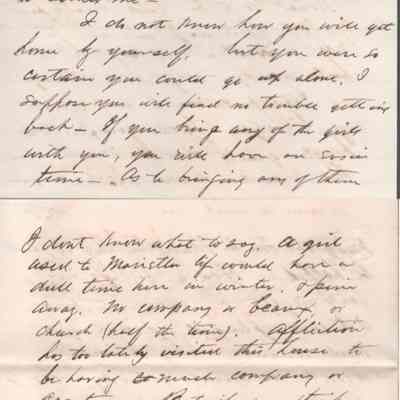 I do not know how you will get
home by yourself. but you were so
certain you could go up alone. I
suppose you will find no trouble getting
back — If you bring any of the girls
with you, you will have an easier
time —. As to bringing any of them
I dont know what to say. A girl
used to life would have a
dull time here in winter, & pine
away. No company or beaux, or
church (half the time). Affliction
has too lately visited this house to
be having so much company or